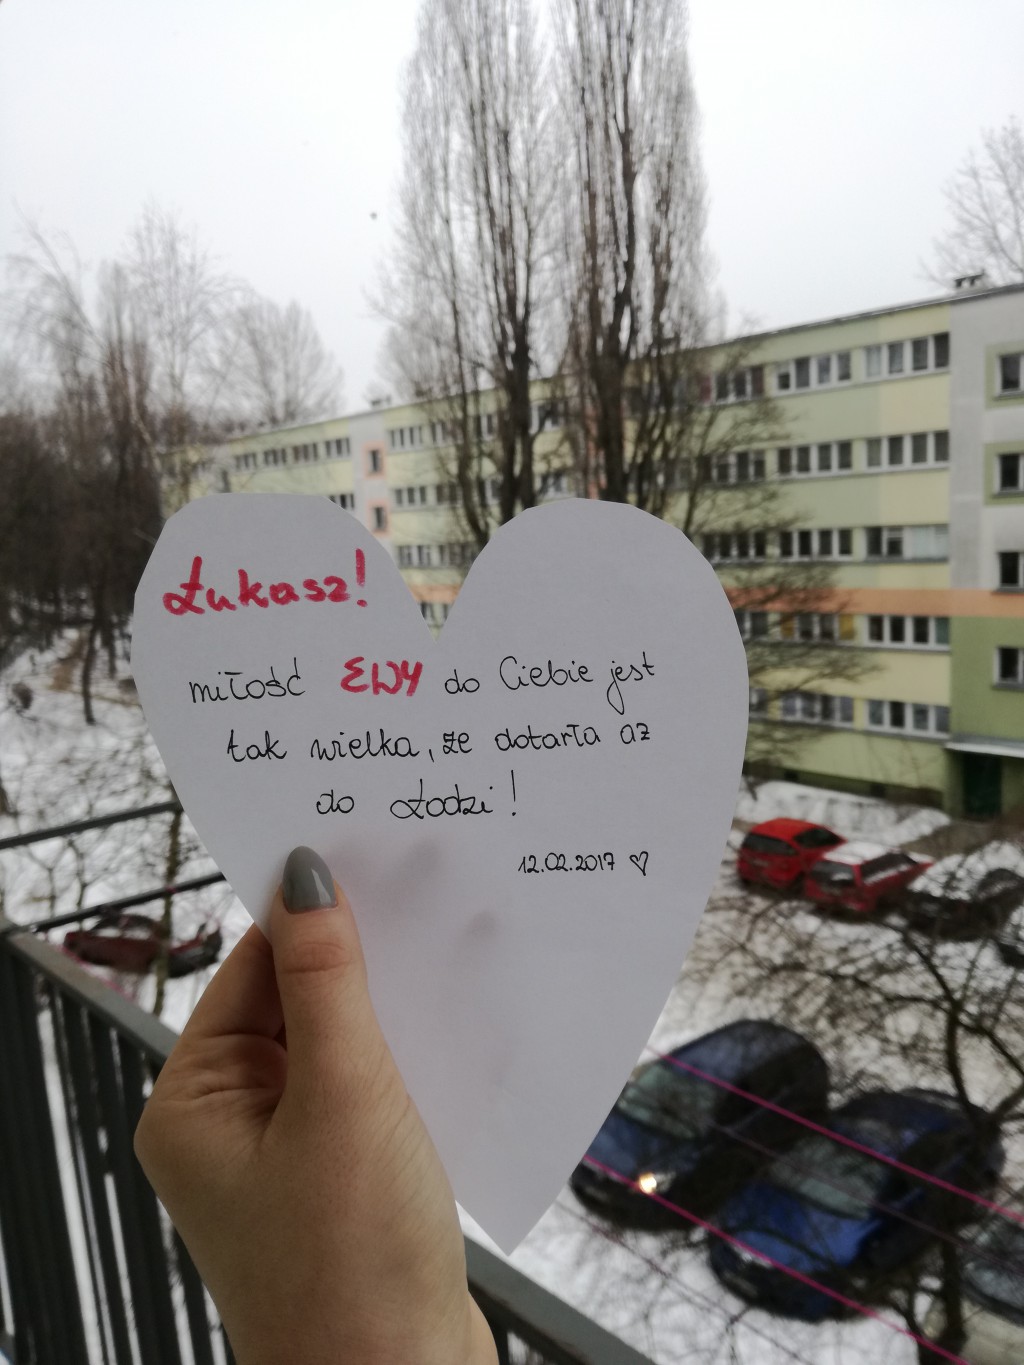 Łukasz!
miłość EWY do Ciebie jest
tak wielka, że dotarła aż
do Łodzi!
12.02.2017 ♡